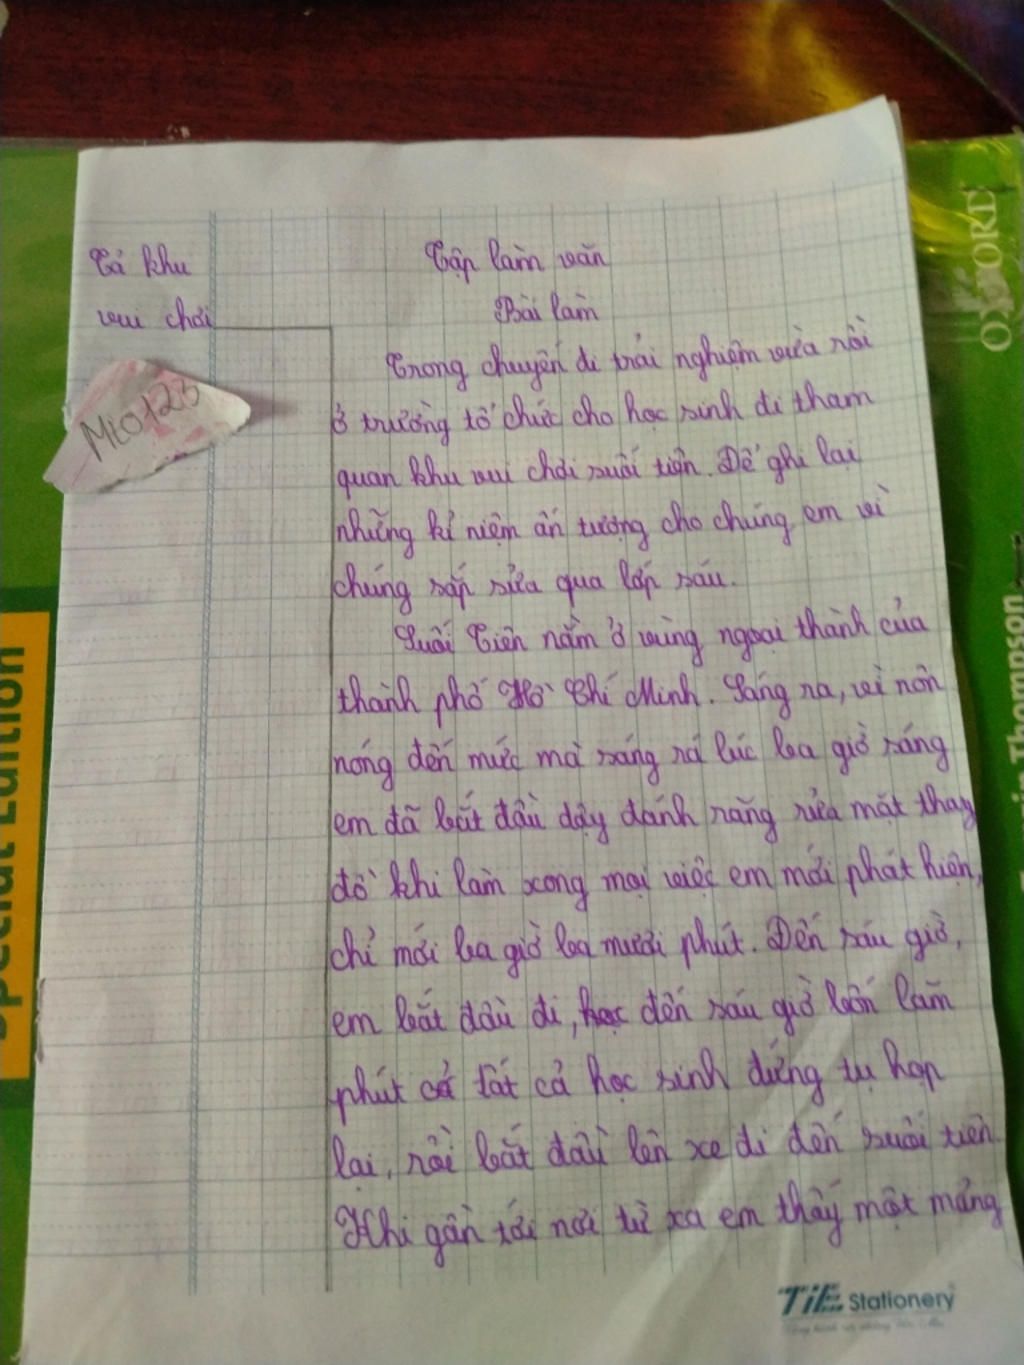 Tả khu
vui chơi
Tập làm văn
Bài làm
MLO123
Trong chuyến đi trải nghiệm vừa rồi
ở trường tổ chức cho học sinh đi tham
quan khu vui chơi suối tiên. Để ghi lại
những kỉ niệm ấn tượng cho chúng em vì
chúng sắp sửa qua lớp sáu.
Suối Tiên nằm ở vùng ngoại thành của
thành phố Hồ Chí Minh. Sáng ra, vì nôn
nóng đến mức mà sáng rá lúc ba giờ sáng
em đã bắt đầu dậy đánh răng rửa mặt thay
đồ khi làm xong mọi việc em mới phát hiện,
chỉ mới ba giờ ba mươi phút. Đến sáu giờ,
em bắt đầu đi, học đến sáu giờ bốn lăm
phút cả tất cả học sinh đứng tụ họp
lại, rồi bắt đầu lên xe đi đến suối tiên.
Khi gần tới nơi từ xa em thấy một mảng
TiE Stationery
OXFORD
Special Edition
in Thompson